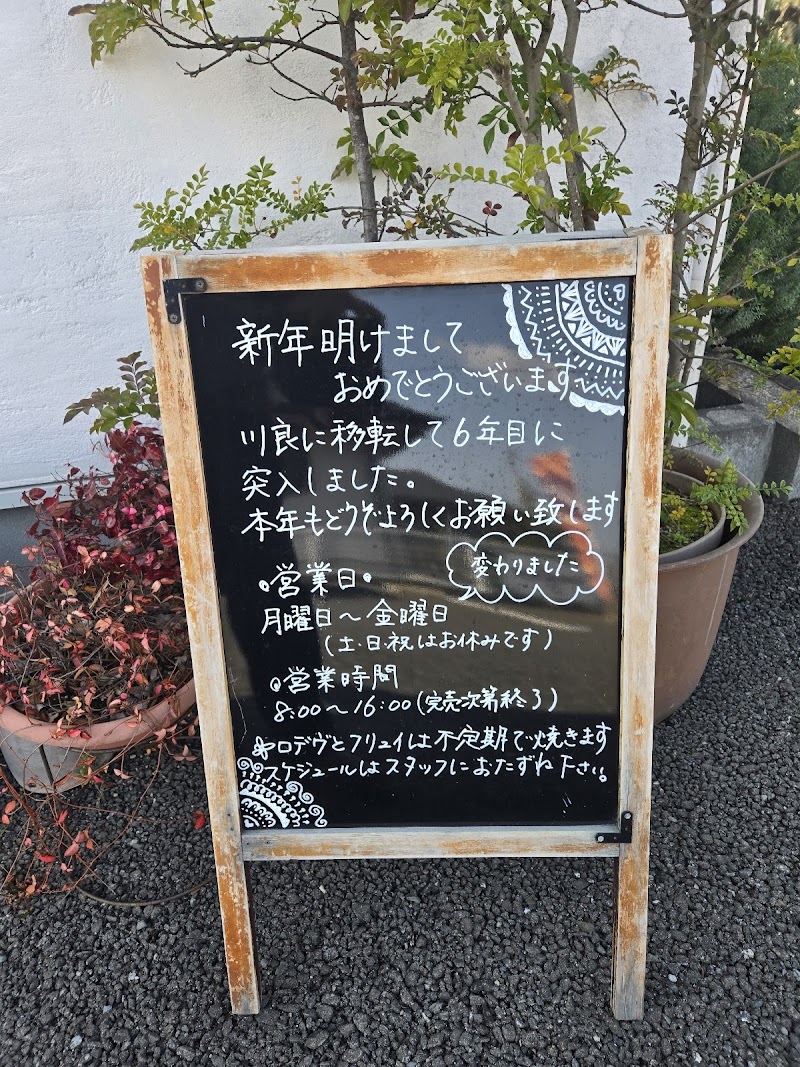 新年明けまして
おめでとうございます
川良に移転して6年目に
突入しました。
本年もどうぞよろしくお願い致します
変わりました
営業日
月曜日〜金曜日
(土・日・祝はお休みです)
営業時間
8:00〜16:00(完売次第終了)
ロデヴとフリュイは不定期で焼きます
スケジュールはスタッフにおたずね下さい。